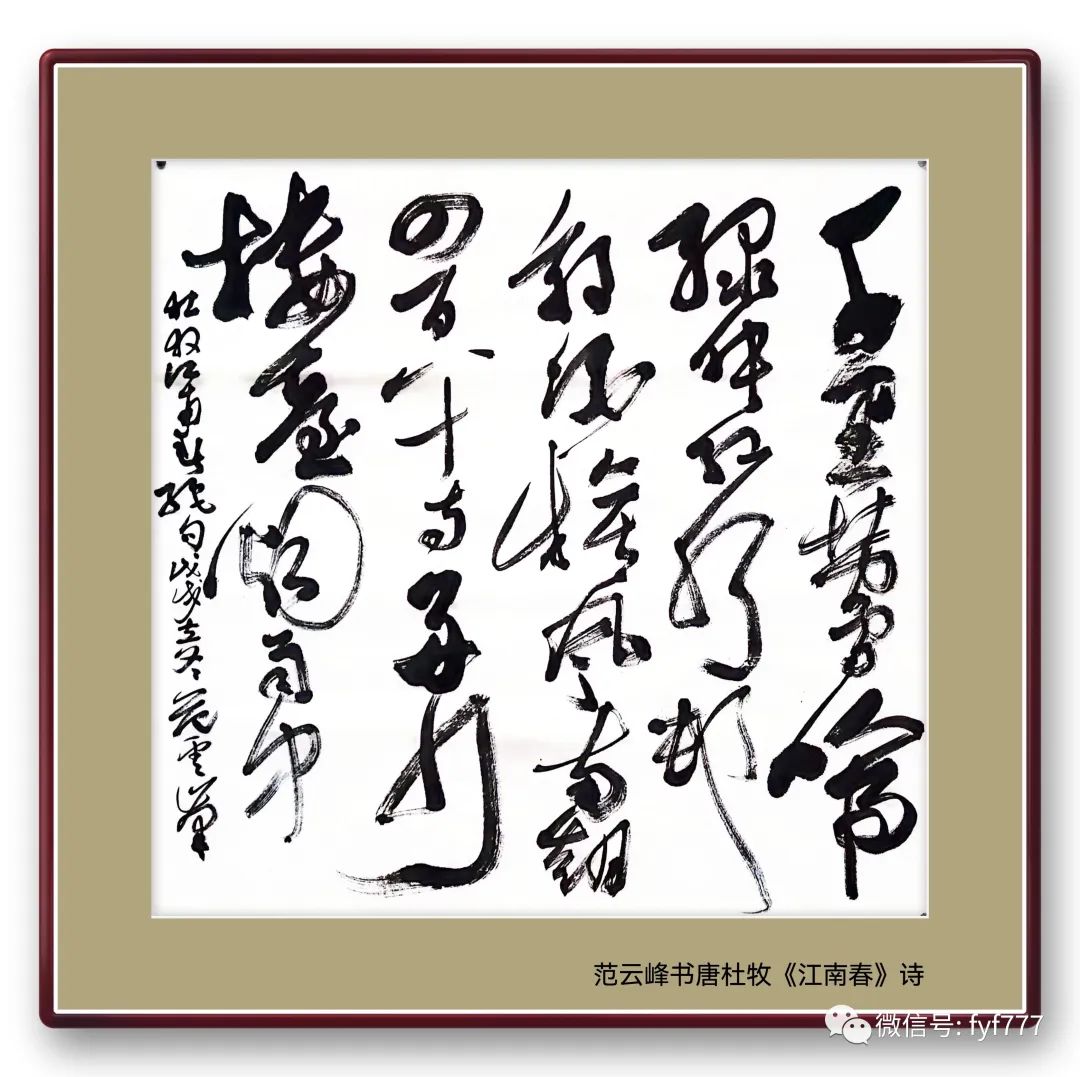 千里鶯啼
緑映红水村
郭酒旗風南朝
四百八十寺多少
樓臺烟雨中
杜牧江南春绝句戊戌立冬范雲峰
范云峰书唐杜牧《江南春》诗
微信号: fyf777